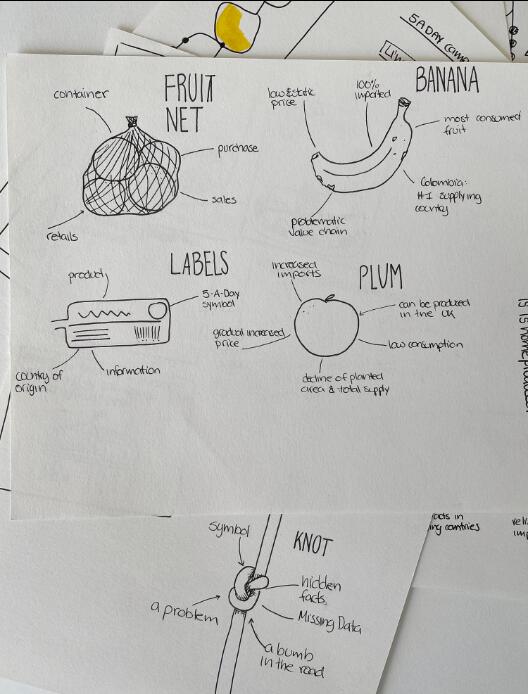 5 A DAY
FRUIT
NET
container
purchase
sales
retails
BANANA
low & static
price
100%
imported
most consumed
fruit
Colombia:
#1 supplying
country
problematic
value chain
LABELS
product
5-A-Day
symbol
country of
origin
information
PLUM
increased
imports
can be produced
in the UK
gradual increased
price
low consumption
decline of planted
area & total supply
KNOT
symbol
hidden
facts,
Missing Data
a problem
a bumb
in the road
in
countries